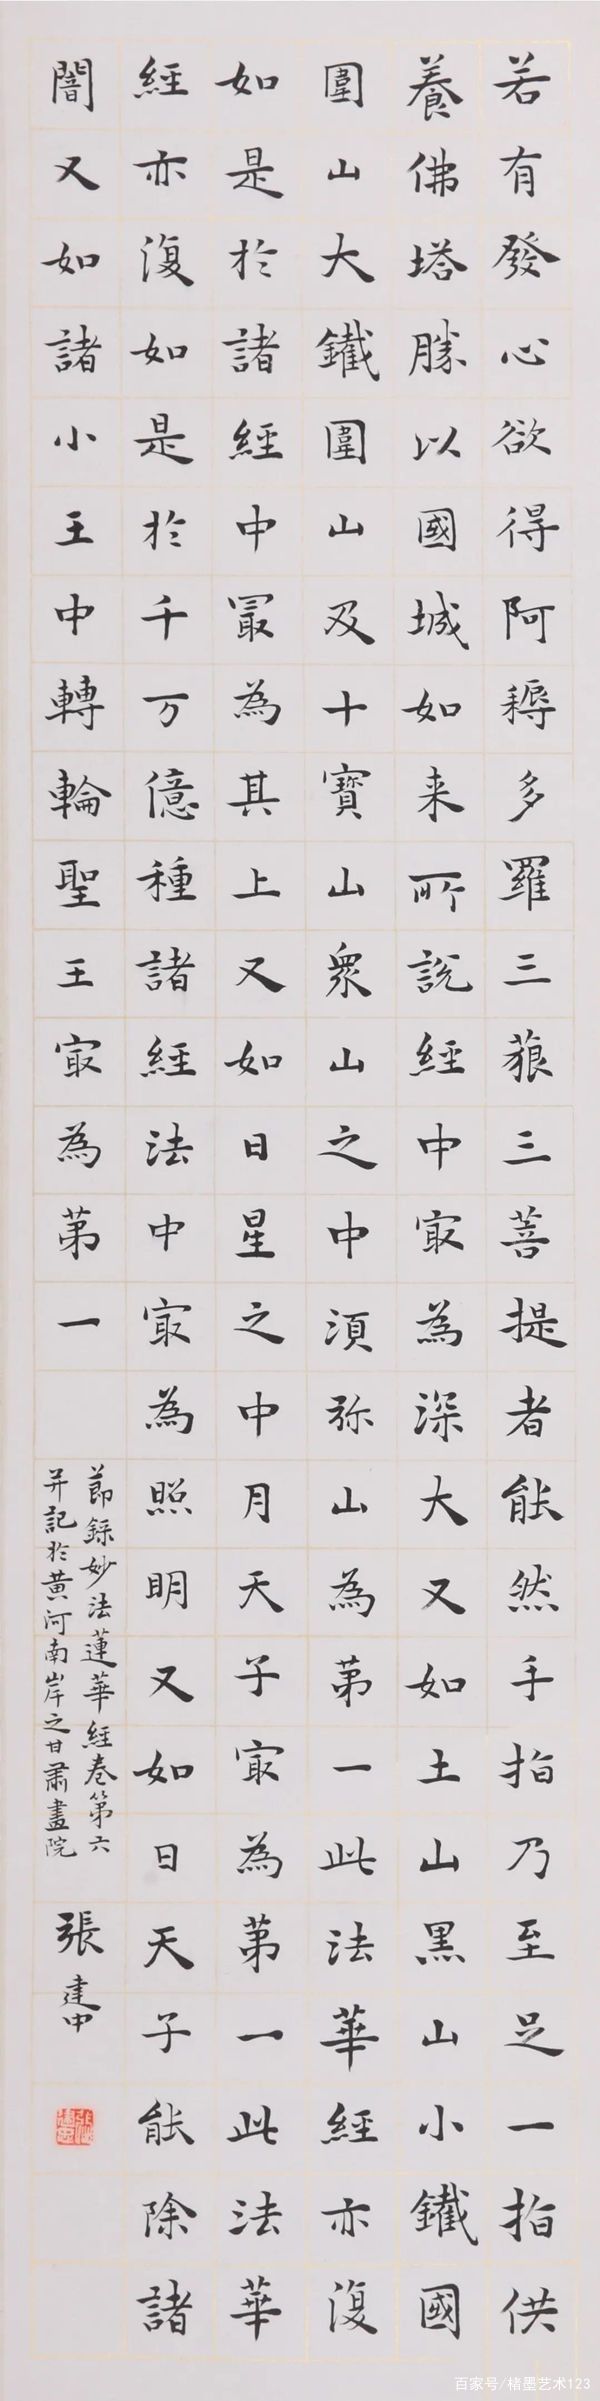 若有發心欲得阿耨多羅三藐三菩提者能然手指乃至足一指供
養佛塔勝以國城如来所說經中冣為深大又如土山黑山小鐵國
圍山大鐵圍山及十寶山眾山之中須弥山為第一此法華經亦復
如是於諸經中冣為其上又如日星之中月天子冣為第一此法華
經亦復如是於千万億種諸經法中冣為照明又如日天子能除諸
闇又如諸小王中轉輪聖王冣為第一
節録妙法蓮華經卷第六
并記於黄河南岸之甘肅畫院
張建中
百家号/楮墨艺术123